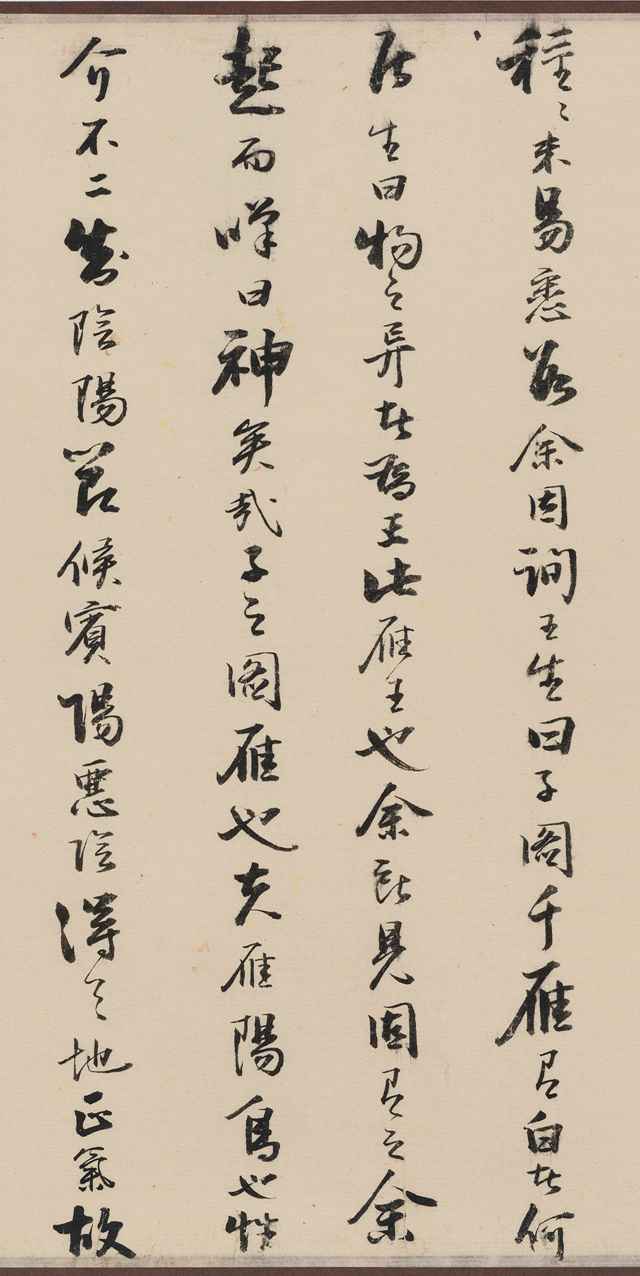 種〻未易悉數余因詢王生曰子圖千雁有白者何
居生曰物之異者為王此雁王也余所見固有之余
起而嘆曰神矣哉子之圖雁也夫雁陽鳥也性
介不二知陰陽節候賓陽惡陰得天地正氣故